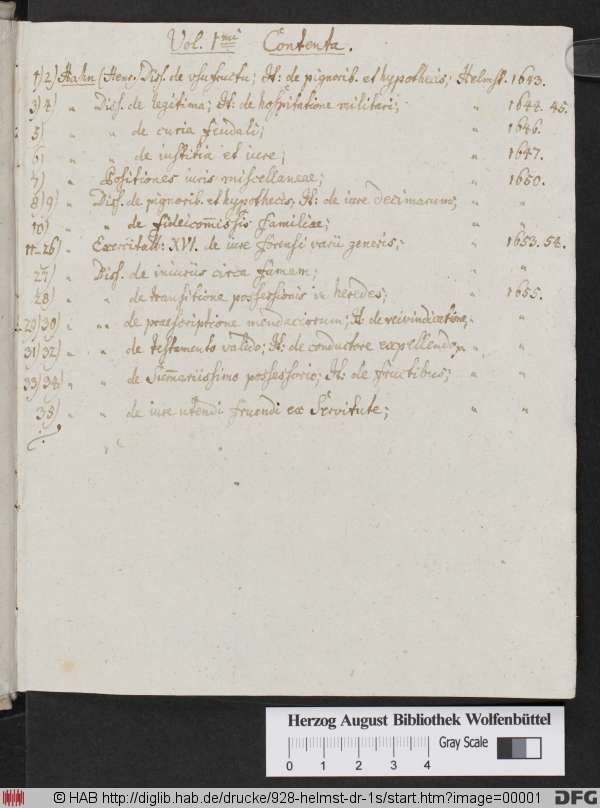 Vol. 1mi Contenta.
1) 2) Hahn (Henr. Diss. de usufructu; It: de pignorib. et hypothecis; Helmst. 1643.
3) 4) " Diss. de legitima; It: de hospitatione militari; " 1644. 45.
5) " " de curia feudali; " 1646.
6) " " de iustitia et iure; " 1647.
7) " Positiones iuris miscellaneae; " 1650.
8) 9) " Diss. de pignorib. et hypothecis, It: de iure decimarum; " "
10) " " de fideicom̄issis familiae; " "
11-26) " Exercitatt: XVI. de iure forensi varii generis; " 1653. 54.
27) " Diss. de iniuriis circa famam; " "
28) " " de transitione possessionis in heredes; " 1655.
29) 30) " " de praescriptione mendaciorum; It de reivindicatione; "
31) 32) " " de testamento valido; It: de conductore expellendo; " "
33) 34) " " de Sum̄ariissimo possessorio; It: de fructibus; " "
35) " " de iure utendi fruendi ex Servitute; " "
Herzog August Bibliothek Wolfenbüttel
0 1 2 3 4 Gray Scale
© HAB http://diglib.hab.de/drucke/928-helmst-dr-1s/start.htm?image=00001 DFG